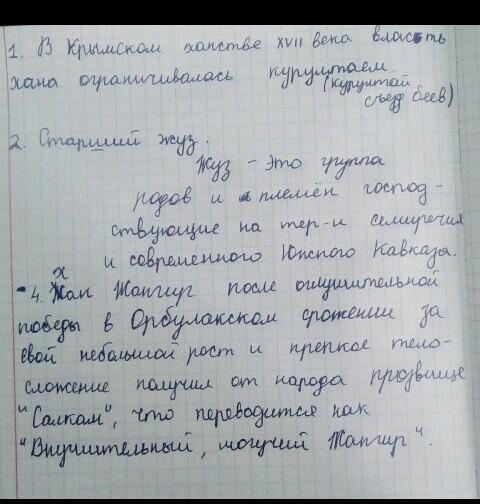 1. В Крымском ханстве XVII века власть
хана ограничивалась курултаем.
(курултай
съезд беев)
2. Старший жуз.
Жуз - это группа
родов и племён господ-
ствующие на тер-и семиречия
и современного Южного Кавказа.
х
- 4. Жан Жангир после оглушительной
победы в Орбулакском сражении за
свой небольшой рост и крепкое тело-
сложение получил от народа прозвище
"Салкам", что переводится как
"Внушительный, могучий Жангир".